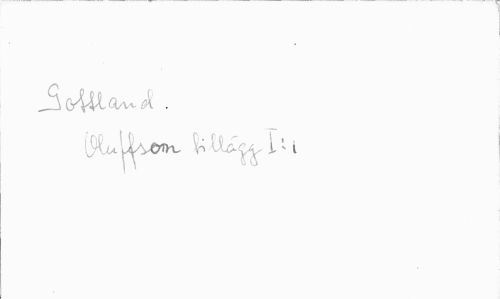 Gottland.
Oluffson tillägg I:1